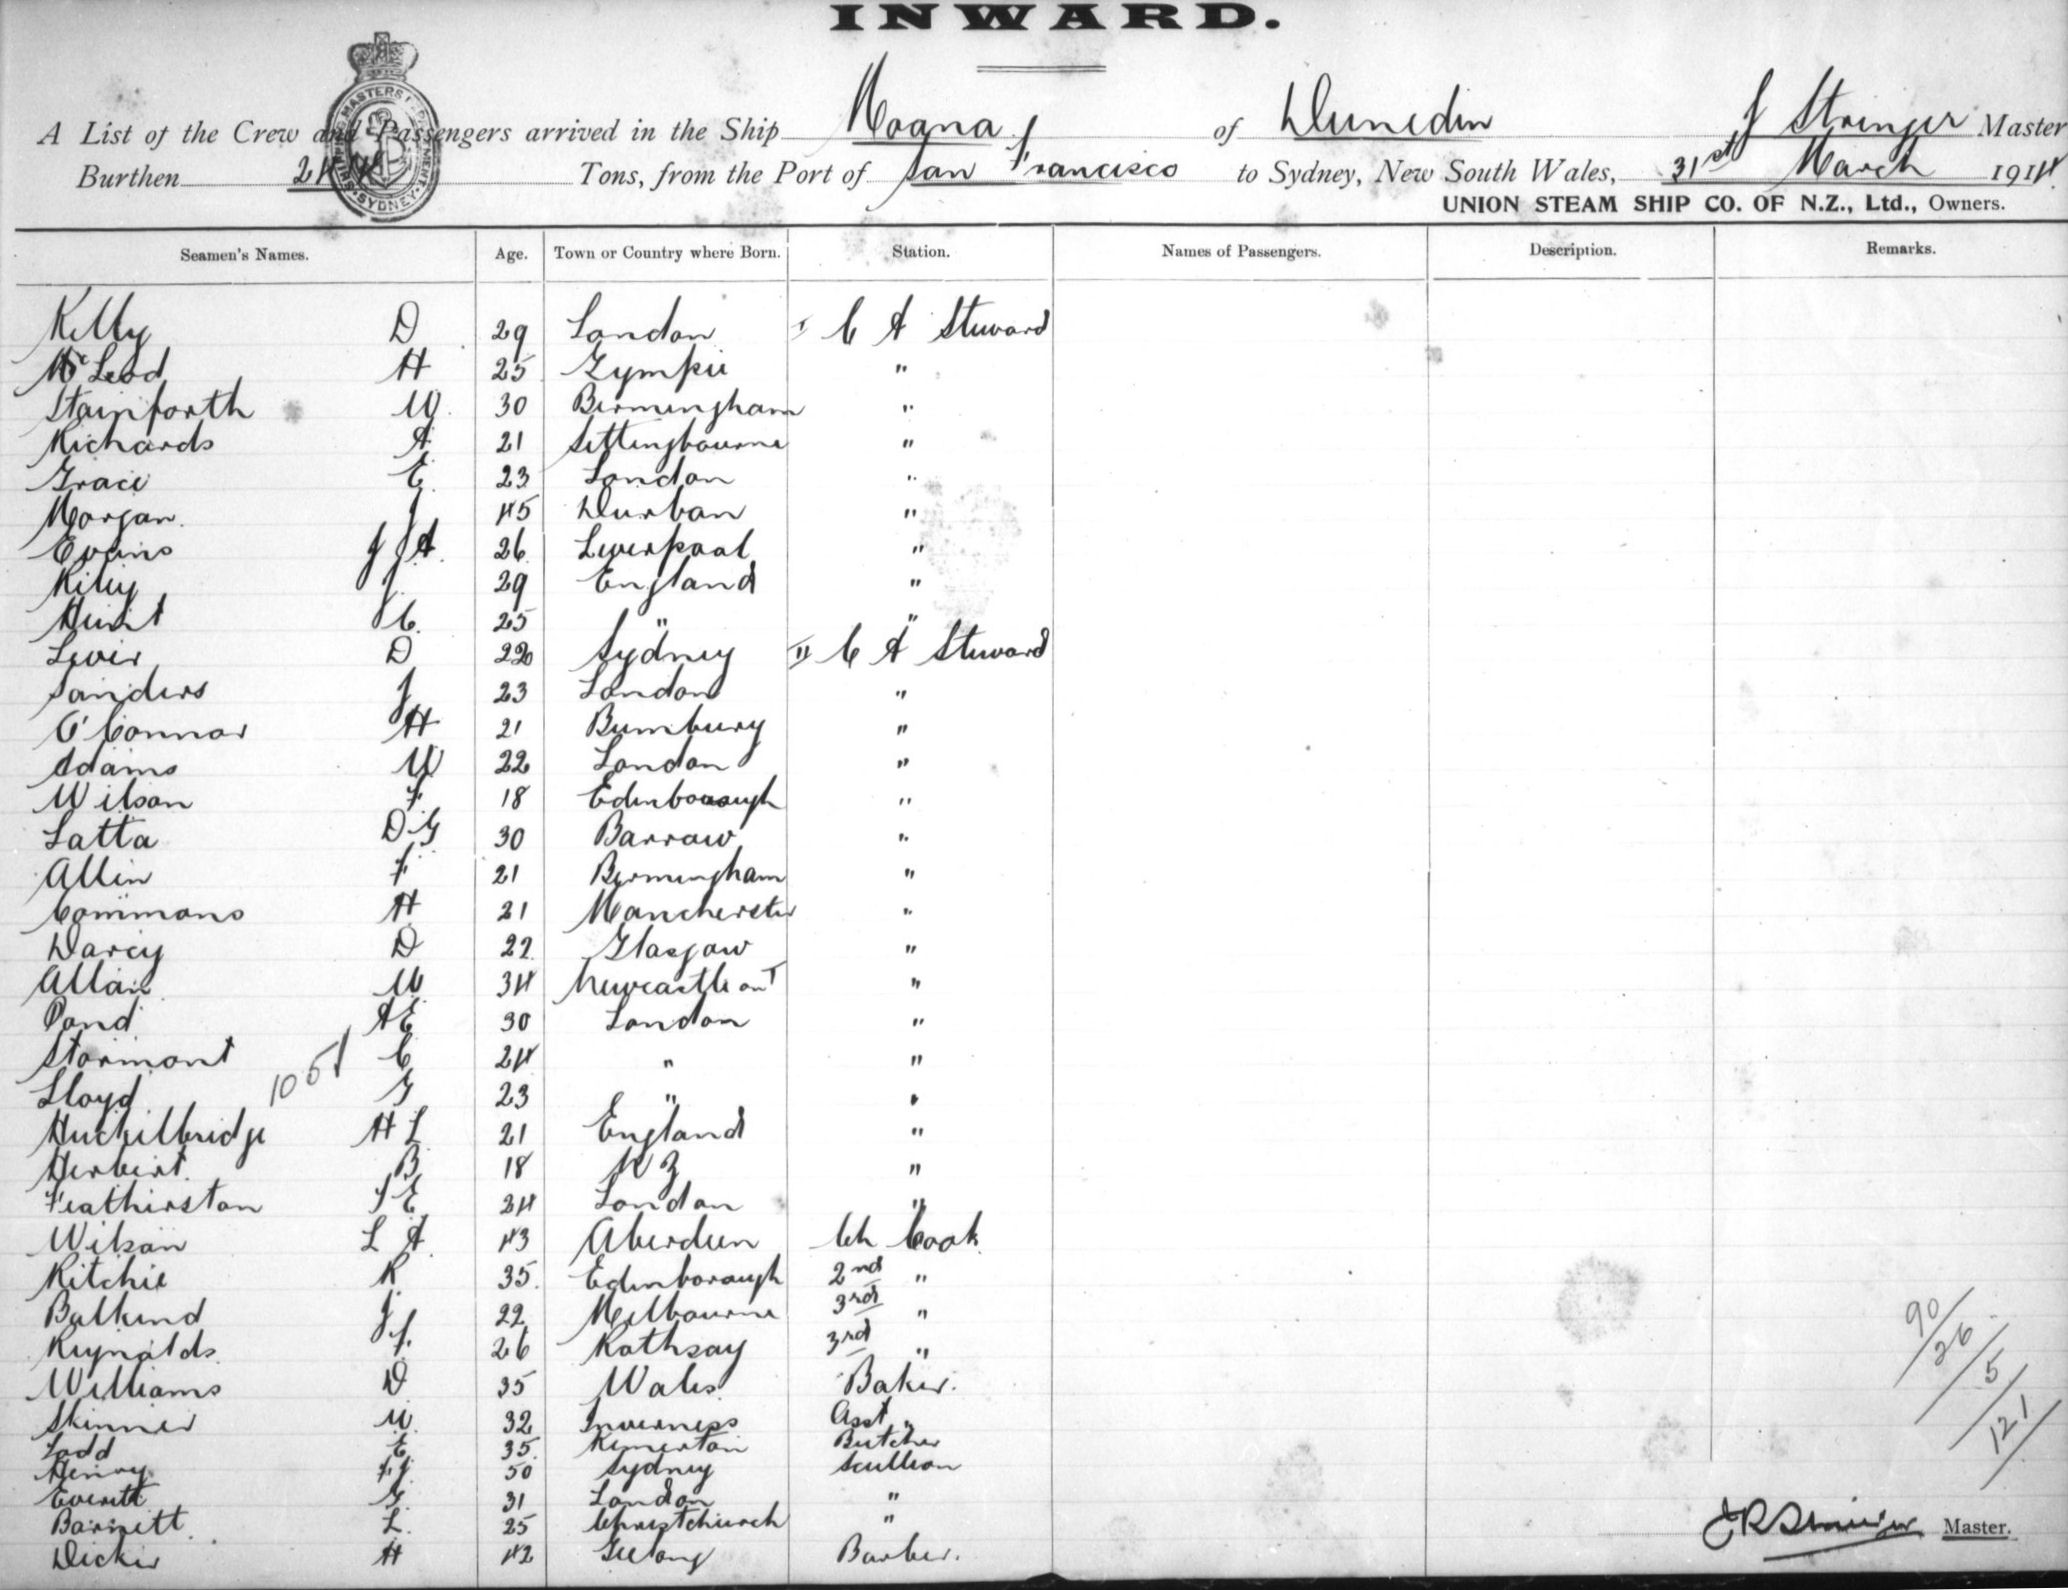 INWARD.
A List of the Crew and Passengers arrived in the Ship Moana of Dunedin J Stringer Master
Burthen Tons, from the Port of San Francisco to Sydney, New South Wales, 31st March 1914
UNION STEAM SHIP CO. OF N.Z., Ltd., Owners.
SHIPPING MASTERS DEPARTMENT SYDNEY
Seamen's Names. Age. Town or Country where Born. Station. Names of Passengers. Description. Remarks.
Kelly D 29 London I C A Steward
McLeod H 25 Gympie "
Stainforth W 30 Birmingham "
Richards A 21 Sittingbourne "
Grace E 23 London "
Morgan J 45 Durban "
Evans J J A 26 Liverpool "
Kiley J 29 England "
Hunt C 25 " "
Levis D 22 Sydney II C A Steward
Sanders J 23 London "
O'Connor H 21 Bumbury "
Adams W 22 London "
Wilson F 18 Edinborough "
Latta D G 30 Barrow "
Allen F 21 Birmingham "
Commons H 21 Mancherster "
Darcy D 22 Glasgow "
Allan W 34 Newcastle on T "
Pond A E 30 London "
Stormont C 24 " "
1051
Lloyd G 23 " "
Huckelbridge H L 21 England "
Herbert B 18 N Z "
Featherston F E 24 London "
Wilson L A 43 Aberdeen Ch Cook
Ritchie R 35 Edinborough 2nd "
Balkind J 22 Melbourne 3rd "
Reynolds J 26 Rothsay 3rd "
Williams D 35 Wales Baker.
Skinner W 32 Inverness Asst "
Ladd E 35 Butcher
Henry F J 50 Sydney Scullion
Everett G 31 London "
Barnett L 25 Christchurch "
Dicker H 42 Geelong Barber.
90/26/5/121
J R Stringer Master.